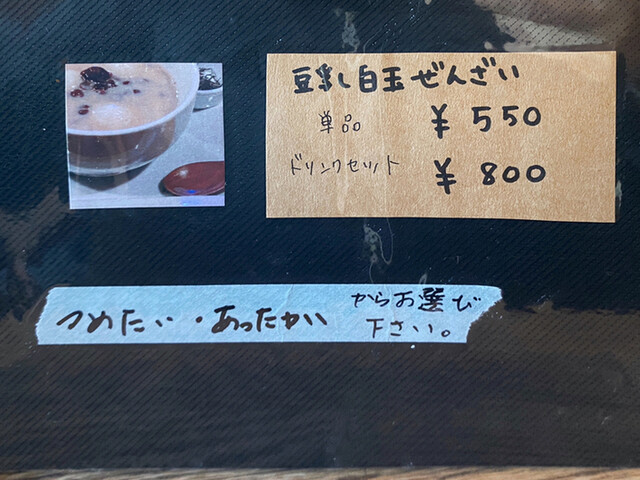 豆乳白玉ぜんざい
単品 ¥550
ドリンクセット ¥800
つめたい・あったかい からお選び
下さい。